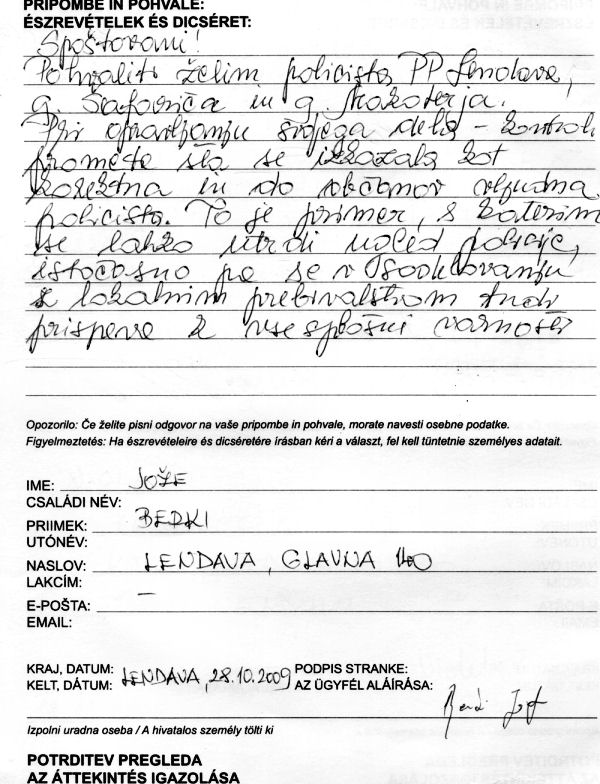 PRIPOMBE IN POHVALE:
ÉSZREVÉTELEK ÉS DICSÉRET:
Spoštovani!
Pohvaliti želim policista PP Lendava,
g. Šafariča in g.
Pri opravljanju svojega dela - kontrola
prometa sta se izkazala kot
korektna in do občanov vljudna
policista. To je primer, s katerim
se lahko utrdi ugled policije,
istočasno pa se v sodelovanju
z lokalnim prebivalstvom tudi
prispeva k vsesplošni varnosti
Opozorilo: Če želite pisni odgovor na vaše pripombe in pohvale, morate navesti osebne podatke.
Figyelmeztetés: Ha észrevételeire és dicséretére írásban kéri a választ, fel kell tüntetnie személyes adatait.
IME: JOŽE
CSALÁDI NÉV:
PRIIMEK: BERKI
UTÓNÉV:
NASLOV: LENDAVA, GLAVNA 140
LAKCÍM:
E-POŠTA: —
EMAIL:
KRAJ, DATUM: LENDAVA, 28.10.2009 PODPIS STRANKE:
KELT, DÁTUM: AZ ÜGYFÉL ALÁÍRÁSA:
Izpolni uradna oseba / A hivatalos személy tölti ki
POTRDITEV PREGLEDA
AZ ÁTTEKINTÉS IGAZOLÁSA